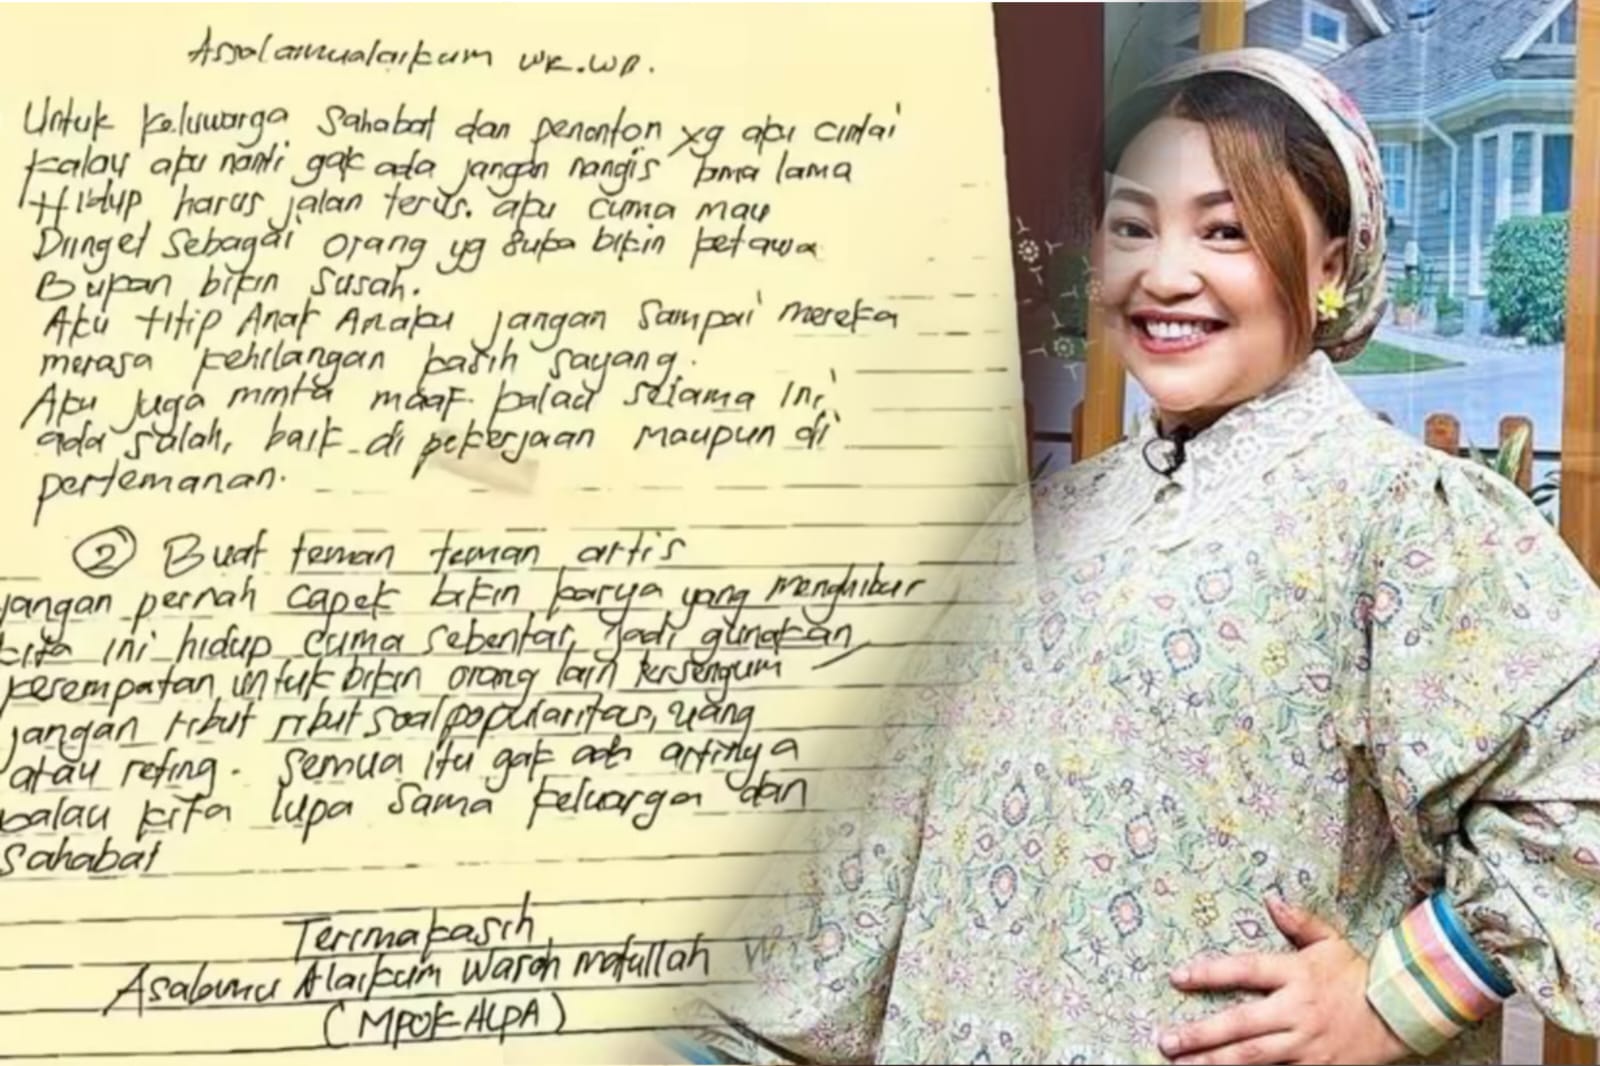 Assalamualaikum wr.wb.
Untuk Keluwarga Sahabat dan penonton yg aku cintai
Kalau aku nanti gak ada jangan nangis lama lama
Hidup harus jalan terus. aku cuma mau
Diinget sebagai orang yg suka bikin ketawa
Bukan bikin susah.
Aku titip Anak Anaku jangan sampai mereka
merasa kehilangan kasih sayang.
Aku juga minta maaf. kalau selama ini
ada salah, baik di pekerjaan maupun di
pertemanan.
② Buat teman teman artis
jangan pernah capek bikin karya yang menghibur
kita ini hidup cuma sebentar, jadi gunakan
kesempatan untuk bikin orang lain tersengum
jangan ribut ribut soal popularitas, uang
atau reting. Semua itu gak ada artinya
kalau kita lupa sama keluarga dan
Sahabat
Terimakasih
Asalamu Alaikum Warohmatullah W
(MPOK ALPA)